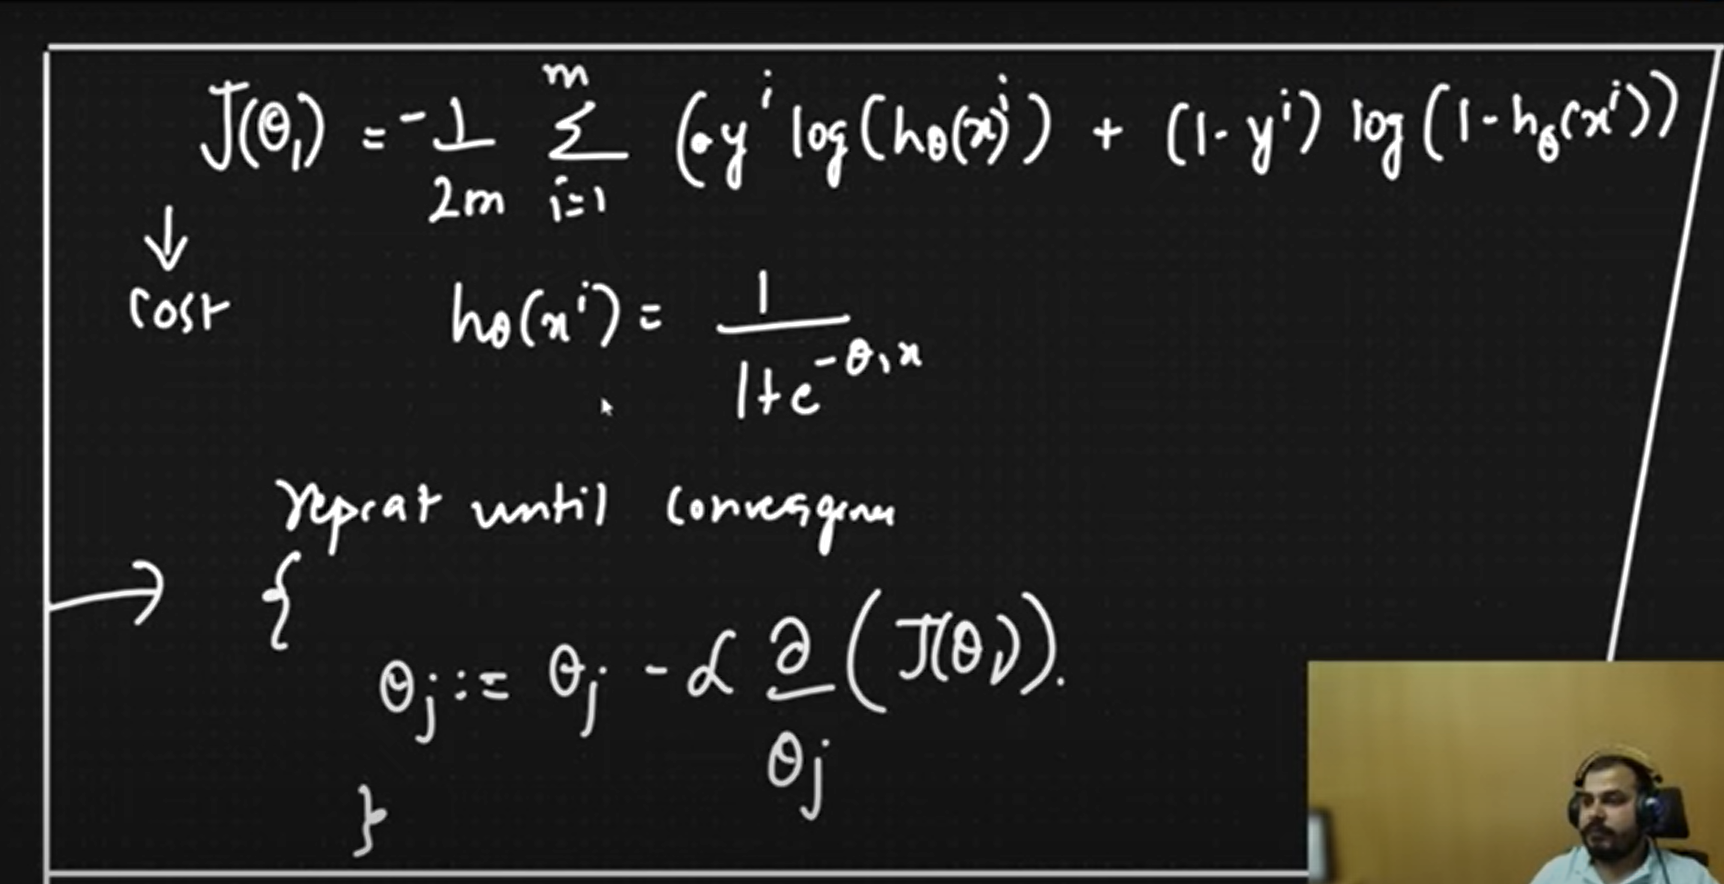 J(θ₁) = -1/2m Σ_{i=1}^{m} (y^i log(h_θ(x)^i) + (1-y^i) log(1-h_θ(x^i)))
↓
cost
h_θ(x^i) = 1/(1+e^{-θ₁x})
repeat until convergence
→ {
θ_j := θ_j - α ∂/θ_j (J(θ₁)).
}